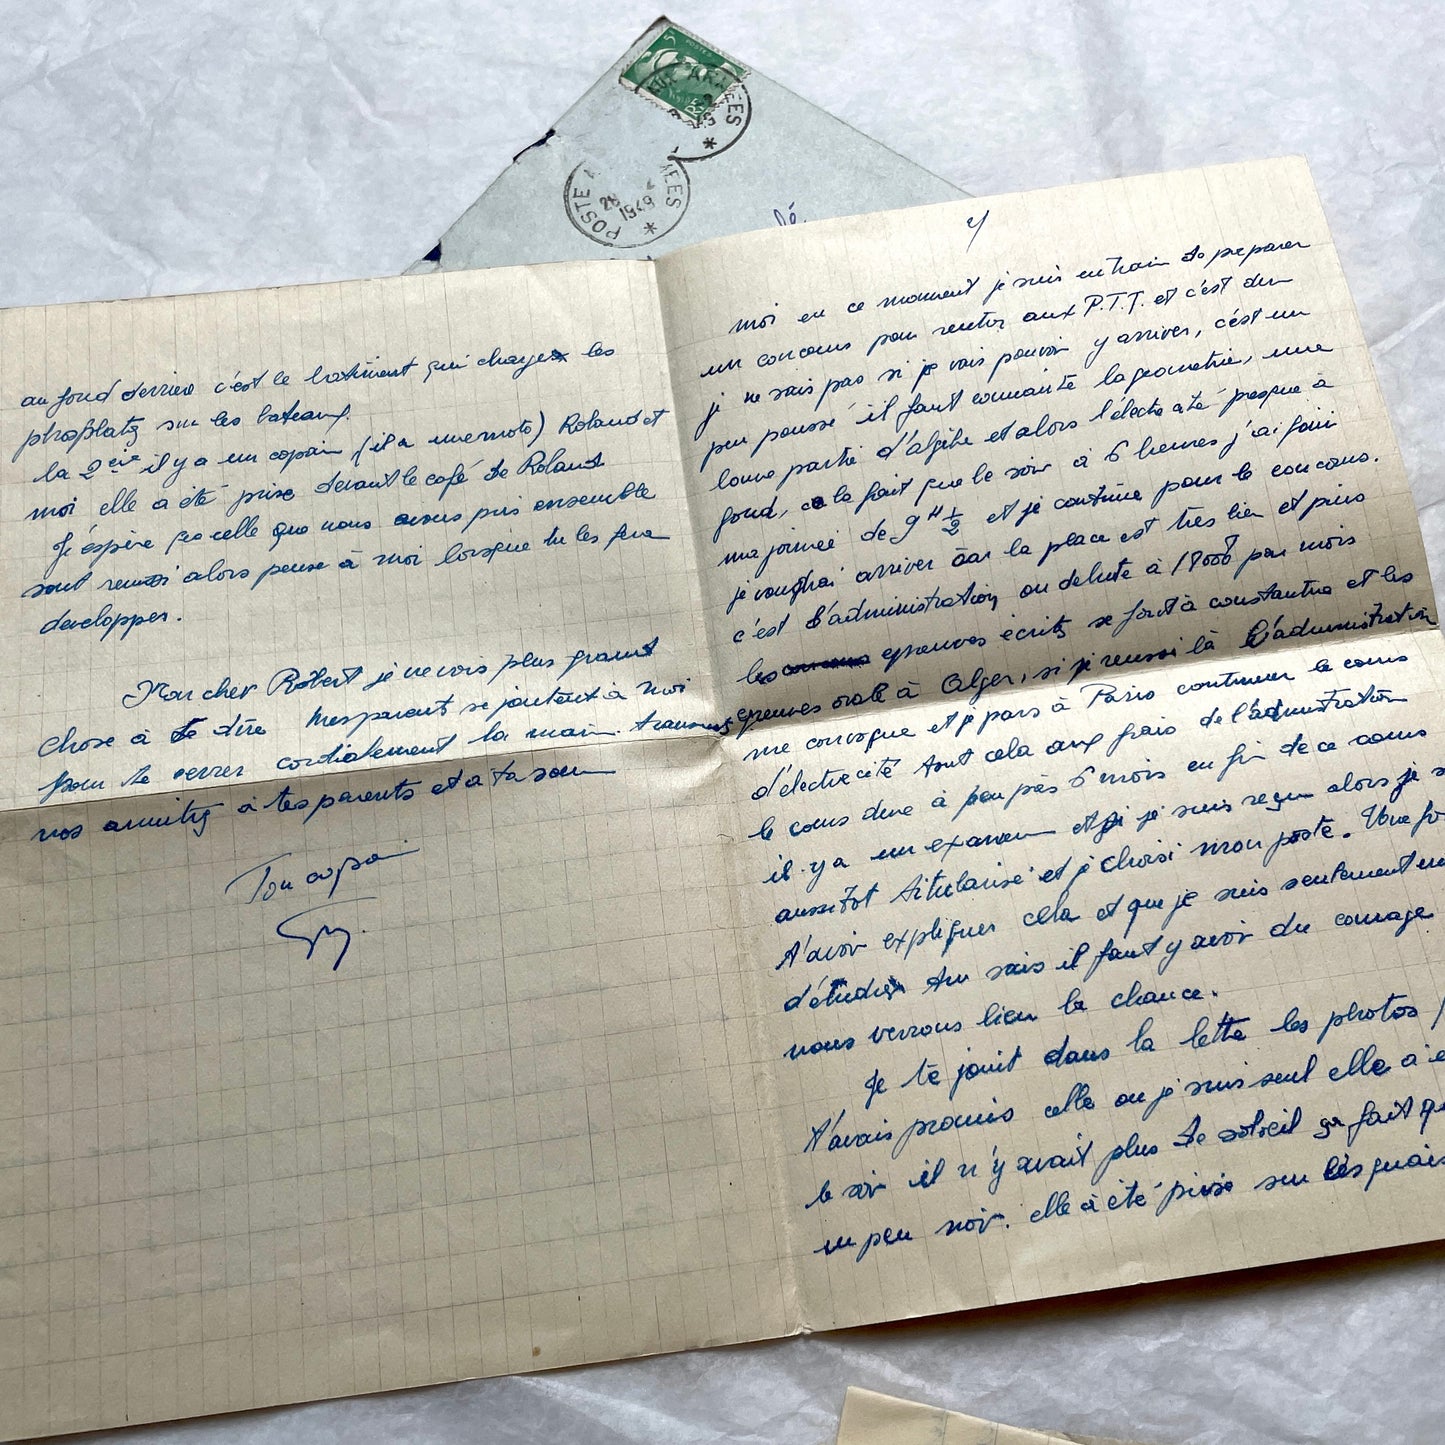 5F
POSTES
RF
POSTE AUX ARMEES
1949
POSTE ARMEES
28
1949
au fond derriere c'est le batiment qui charge les
phosphates sur les bateaux.
la 2eme il y a un copain (il a une moto) Roland et
moi elle a été prise devant le café de Roland
J'éspère que celle que nous avons pris ensemble
sont reussi alors pense à moi lorsque tu les fera
developper.
Mon cher Robert je ne vois plus grand
chose à te dire mes parent se jointent à moi
pour te serrer cordialement la main. transmets
nos amitiés à tes parents et a ta soeur
Ton copain
Guy.
2/
moi en ce moment je suis entrain de preparer
un concours pour rentrer aux P.T.T. et c'est dur
je ne sais pas si je vais pouvoir y arriver, c'est un
peu poussé il faut connaitre la geometrie, une
bonne partie d'algèbe et alors l'électricité presque à
fond, ce la fait que le soir à 6 heures j'ai fini
ma journée de 9H 1/2 et je continue pour le concours.
je voudrai arriver car la place est très bien et puis
c'est l'administration, on debute à 18000f par mois
les epreuves écrites se font à constantine et les
epreuves orale à Alger, si je reussi là l'administration
me convoque et je pars à Paris continuer le cours
d'électricité tout cela aux frais de l'administration
le cours dure à peu près 6 mois en fin de ce cours
il y a un examen et si je suis reçu alors je s
aussitot titularisé et je choisi mon poste. Une fo
t'avoir expliquer cela et que je suis seulement en
d'étudier tu sais il faut y avoir du courage
nous verrons bien la chance.
Je te joint dans la lettre les photos
t'avais promis celle ou je suis seul elle à é
le soir il n'y avait plus de soleil ça fait qu
un peu noir. elle à été prise sur les quais